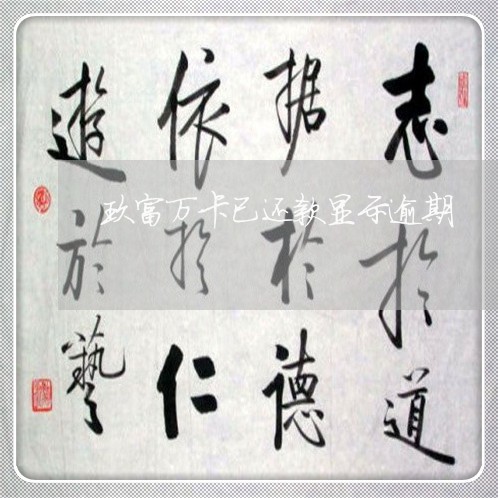 志於道
据於德
依於仁
遊於藝
玖富万卡已还款显示逾期